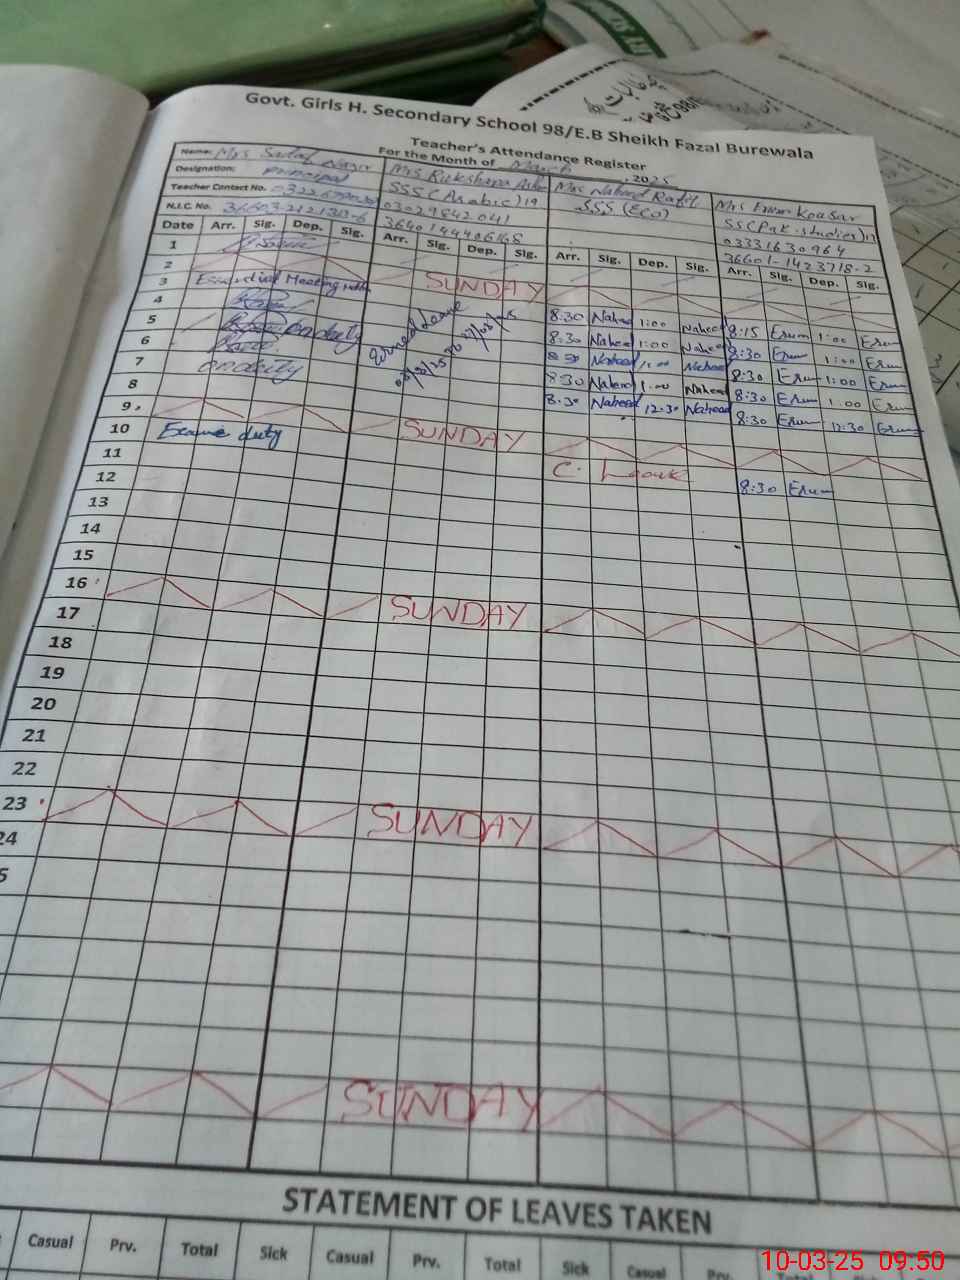 Govt. Girls H. Secondary School 98/E.B Sheikh Fazal Burewala
Teacher's Attendance Register
For the Month of March, 2025
Name: Mrs Sadaf Mrs Rukshana Mrs Naheed Mrs Erum Kousar
Designation: Principal SSS (Arabic) 19 SSS (Eco) SS (Pak-studies) 17
Teacher Contact No. 03029842041 03331630964
N.I.C. No. 36601-1423718-2
Date Arr. Sig. Dep. Sig. Arr. Sig. Dep. Sig. Arr. Sig. Dep. Sig. Arr. Sig. Dep. Sig.
1
2 SUNDAY
3 Meeting 8:30 Naheed 1:00 Naheed 8:15 Erum 1:00 Erum
4 Earned Leave 8:30 Naheed 1:00 Naheed 8:30 Erum 1:00 Erum
5 On duty 8:30 Naheed 1:00 Naheed 8:30 Erum 1:00 Erum
6 8:30 Naheed 1:00 Naheed 8:30 Erum 1:00 Erum
7 on duty 8:30 Naheed 12:30 Naheed 8:30 Erum 12:30 Erum
8
9 SUNDAY
10 Exam duty C. Leave 8:30 Erum
11
12
13
14
15
16 SUNDAY
17
18
19
20
21
22
23 SUNDAY
24
5
SUNDAY
STATEMENT OF LEAVES TAKEN
Casual Prv. Total Sick Casual Prv. Total Sick Casual Prv. Total
10-03-25 09:50